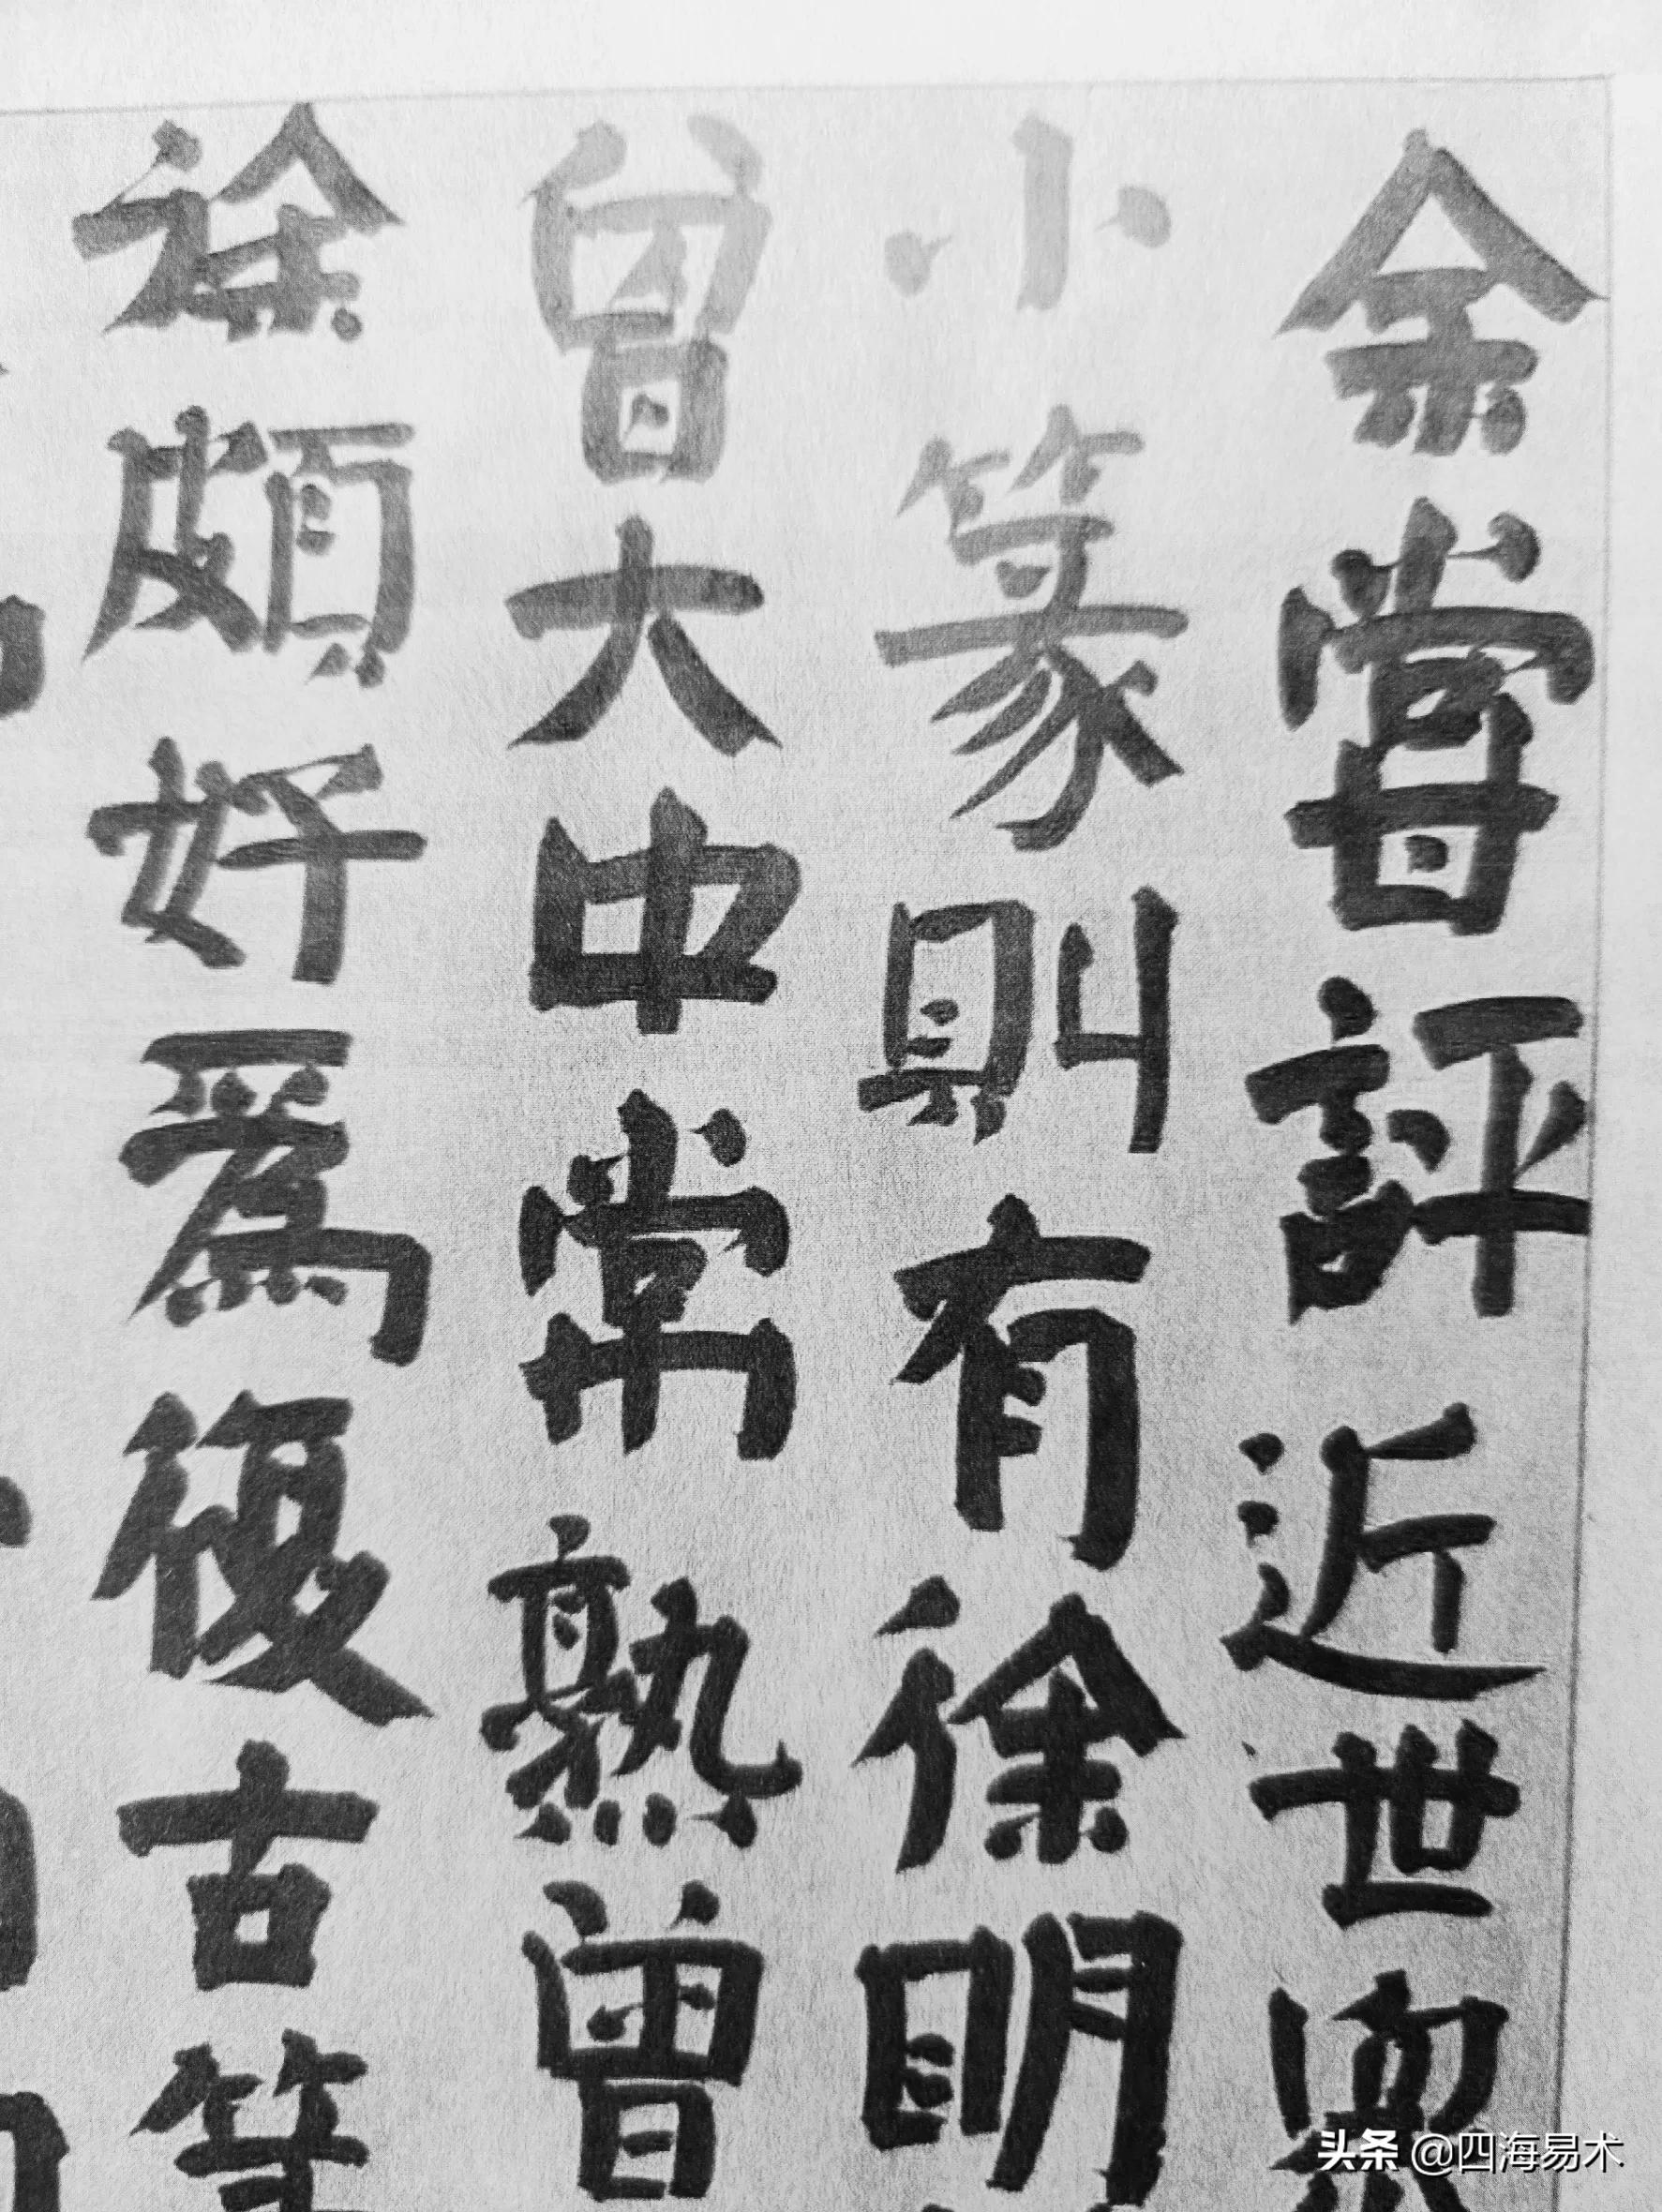 余嘗評近世
小篆則有徐明
曾大中常熟曾
徐頗好爲復古
头条 @四海易术